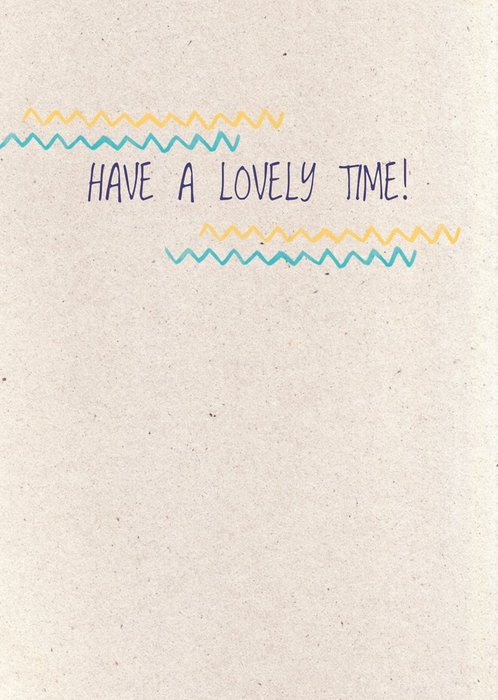 HAVE A LOVELY TIME!